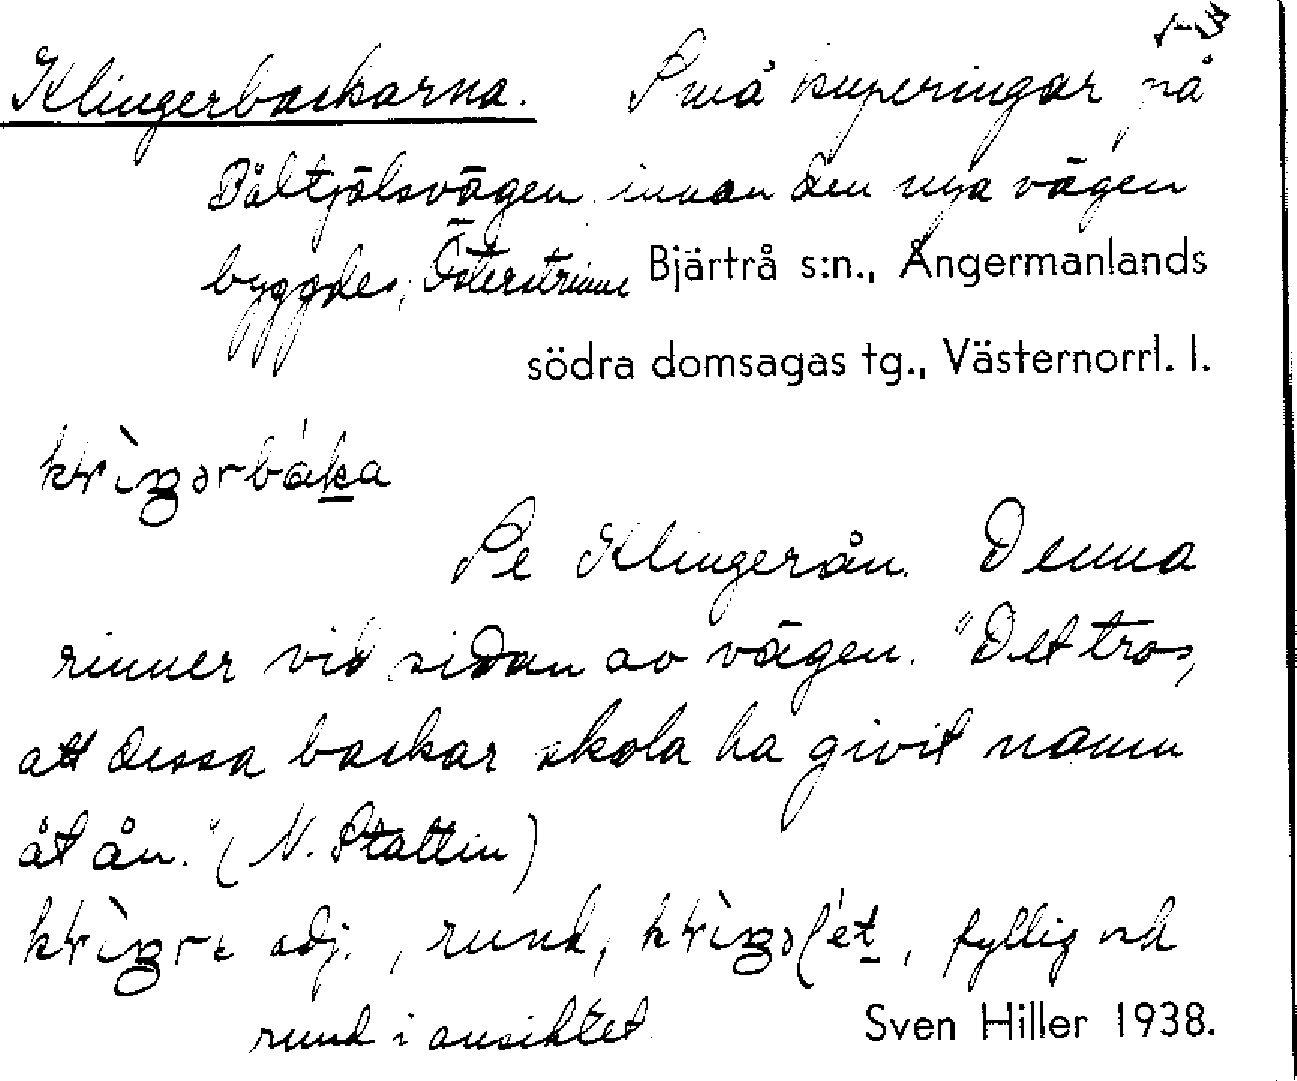 Klingerbackarna. Små kuperingar på
Påltjälsvägen innan den nya vägen
byggdes, Österstrinne Bjärtrå s:n., Ångermanlands
södra domsagas tg., Västernorrl. l.
Se Klingerån. Denna
rinner vid sidan av vägen. "Det tros,
att dessa backar skola ha givit namn
åt ån." (N. Stattin)
adj., rund, fyllig och
rund i ansiktet Sven Hiller 1938.